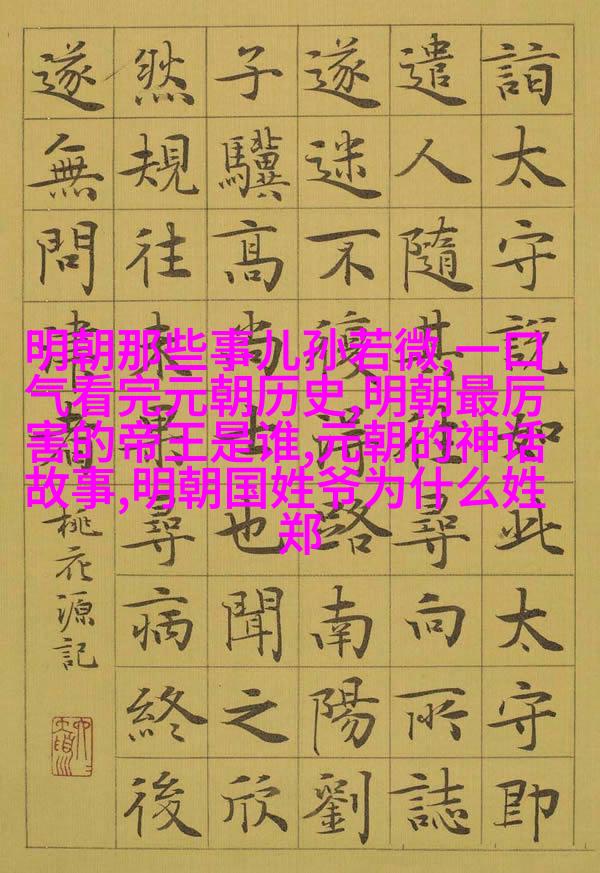 明朝那些事儿孙若微,一口
气看完元朝历史,明朝最厉
害的帝王是谁,元朝的神话
故事,明朝国姓爷为什么姓
郑
詣太守説如此太守即
遣人隨其往尋向所誌
遂迷不復得路南陽劉
子驥高尚士也聞之欣
然規往未果尋病終後
遂無問津者
桃花源記